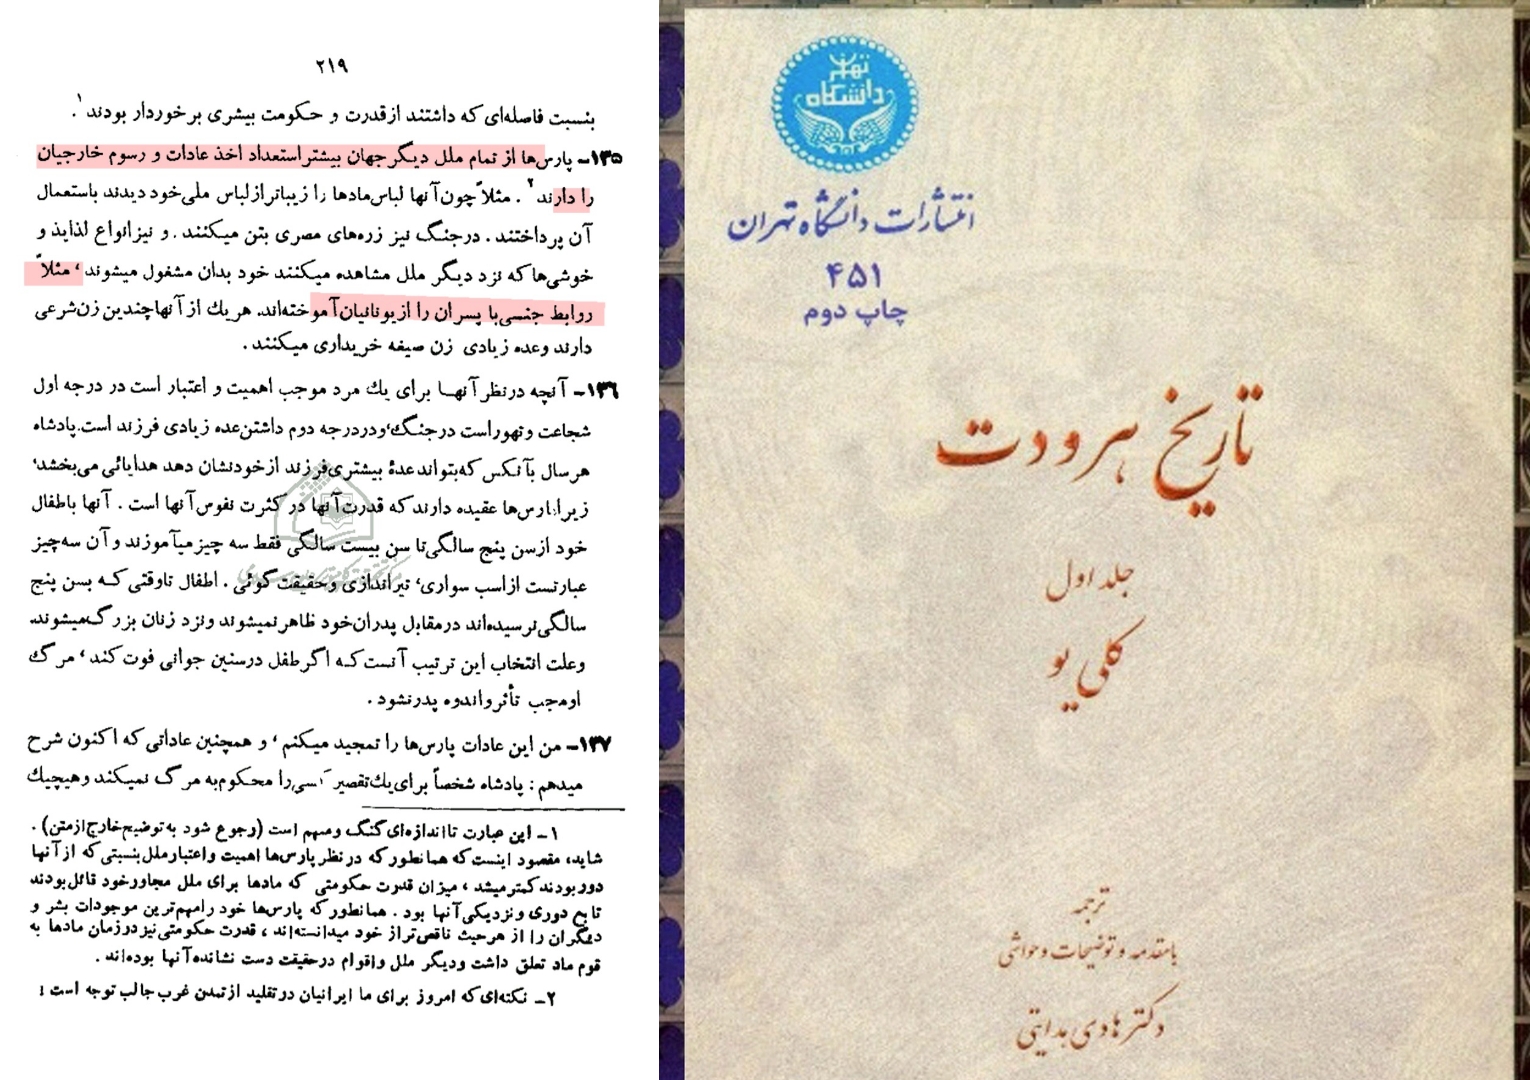 ۲۱۹
بنسبت فاصله‌ای که داشتند از قدرت و حکومت بیشری برخوردار بودند۱.
۱۳۵- پارس‌ها از تمام ملل دیگر جهان بیشتر استعداد اخذ عادات و رسوم خارجیان
را دارند۲. مثلاً چون آنها لباس مادها را زیباتر از لباس ملی خود دیدند باستعمال
آن پرداختند. در جنگ نیز زره‌های مصری بتن میکنند. و نیز انواع لذاید و
خوشی‌ها که نزد دیگر ملل مشاهده میکنند خود بدان مشغول میشوند، مثلاً
روابط جنسی با پسران را از یونانیان آموخته‌اند. هریك از آنها چندین زن شرعی
دارند و عده زیادی زن صیغه خریداری میکنند.
۱۳۶- آنچه در نظر آنها برای یك مرد موجب اهمیت و اعتبار است در درجه اول
شجاعت و تهور است در جنگ، و در درجه دوم داشتن عده زیادی فرزند است. پادشاه
هر سال بآنکس که بتواند عدۀ بیشتری فرزند از خود نشان دهد هدایائی می‌بخشد،
زیرا پارس‌ها عقیده دارند که قدرت آنها در کثرت نفوس آنها است. آنها باطفال
خود از سن پنج سالگی تا سن بیست سالگی فقط سه چیز میآموزند و آن سه چیز
عبارتست از اسب سواری، تیراندازی و حقیقت گوئی. اطفال تا وقتی که بسن پنج
سالگی نرسیده‌اند در مقابل پدران خود ظاهر نمیشوند و نزد زنان بزرگ میشوند.
و علت انتخاب این ترتیب آنست که اگر طفل در سنین جوانی فوت کند، مرگ
او موجب تأثر و اندوه پدر نشود.
۱۳۷- من این عادات پارس‌ها را تمجید میکنم، و همچنین عاداتی که اکنون شرح
میدهم: پادشاه شخصاً برای یك تقصیر کسی را محکوم به مرگ نمیکند و هیچیك
۱- این عبارت تا اندازه‌ای گنگ و مبهم است (رجوع شود به توضیح خارج از متن).
شاید، مقصود اینست که همانطور که در نظر پارس‌ها اهمیت و اعتبار ملل بنسبتی که از آنها
دور بودند کمتر میشد، میزان قدرت حکومتی که مادها برای ملل مجاور خود قائل بودند
تابع دوری و نزدیکی آنها بود. همانطور که پارس‌ها خود را مهم‌ترین موجودات بشر و
دیگران را از هر حیث ناقص‌تر از خود میدانسته‌اند، قدرت حکومتی نیز در زمان مادها به
قوم ماد تعلق داشت و دیگر ملل و اقوام در حقیقت دست نشانده آنها بوده‌اند.
۲- نکته‌ای که امروز برای ما ایرانیان در تقلید از تمدن غرب جالب توجه است!
دانشگاه تهران
انتشارات دانشگاه تهران
۴۵۱
چاپ دوم
تاریخ هرودت
جلد اول
کلی یو
ترجمه
با مقدمه و توضیحات و حواشی
دکتر هادی هدایتی